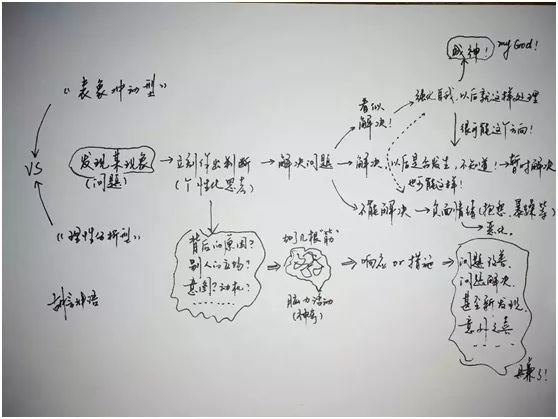 战神！
my God！
“表象冲动型”
看似
解决！
强化自我，以后就这样处理
很可能这个方向！
VS
发现某现象
(问题)
立刻作出判断
(个性化思考)
解决问题
解决
以后是否发生，不知道！
暂时解决
也可能这样！
不能解决
负面情绪(抱怨 暴躁等)
恶化.
“理性分析型”
背后的原因？
别人的立场？
意图？动机？
......
动几根“筋”
脑力活动
(神奇)
响应 or 措施
问题改善.
问题解决.
甚至新发现.
意外之喜
......
赚了！